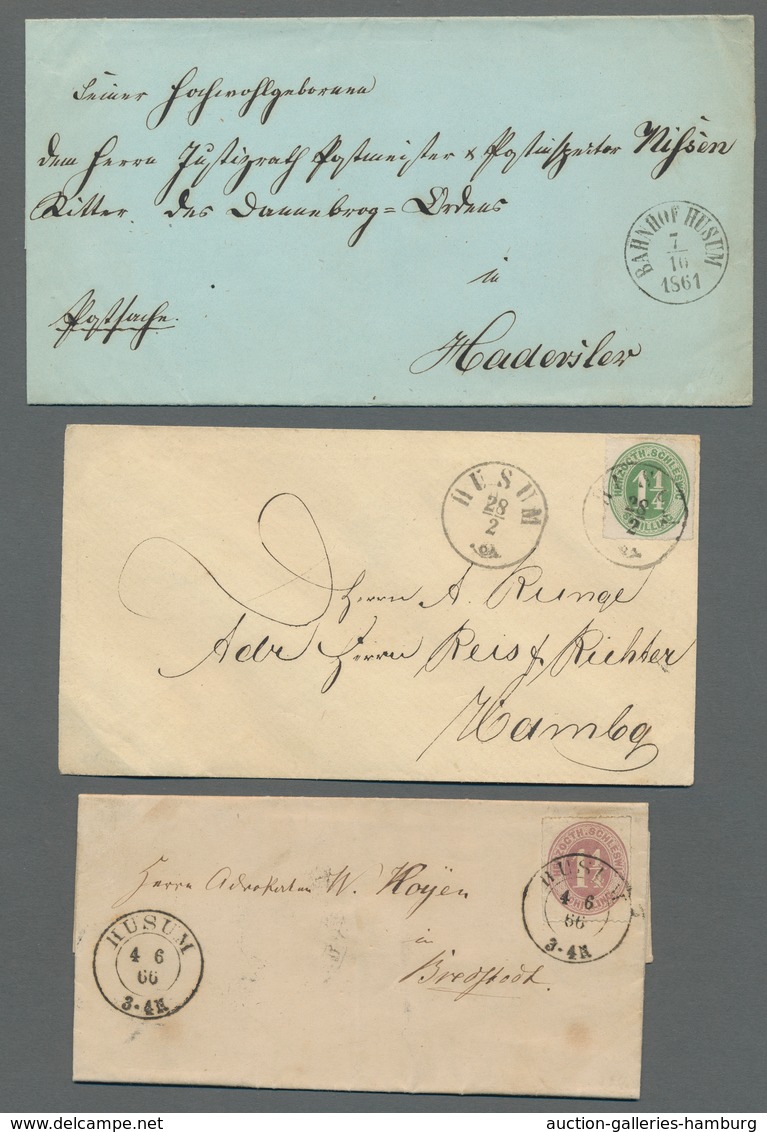 Seiner Hochwohlgebornen
dem Herrn Justizrath Postmeister & Postinspector Nissen
Ritter des Dannebrog=Ordens
in
Postsache.
BAHNHOF HUSUM
7
10
1861
HUSUM
28
2
HERZOGTH. SCHLESW
1 1/4
SCHILLING
28
2
Herrn A. Runge
Adr Herrn Reis & Richter
Hambg
HERZOGTH. SCHLESW
1 1/4
SCHILLING
HUSUM
4 6
66
3-4N
Herrn Advokaten W. Koyen
in
Bredstedt.
HUSUM
4 6
66
3-4N
auction-galleries-hamburg